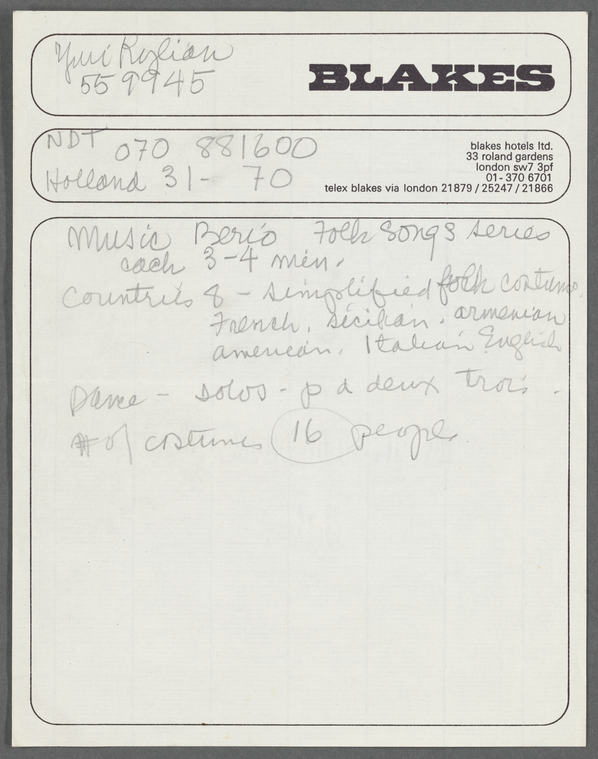 Yuri Kylian
559945
BLAKES
NDT 070 881600
Holland 31- 70
blakes hotels ltd.
33 roland gardens
london sw7 3pf
01- 370 6701
telex blakes via london 21879 / 25247 / 21866
Music Berio Folk Songs series
each 3-4 min.
Countries 8 - simplified folk costume
French, sicilian. armenian
american. Italian English
Dance - solos - p d deux trois.
# of costumes 16 people